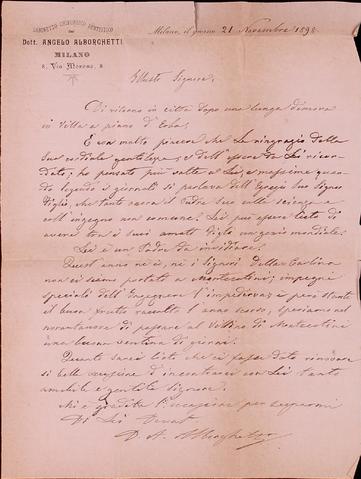 GABINETTO CHIRURGICO DENTISTICO
DEL
DOTT. ANGELO ALBORGHETTI
MILANO
8, Via Morone, 8
Milano, il giorno 21 Novembre 1898
Illustre Signora,
Di ritorno in città dopo una lunga dimora
in Villa a piano d'Erba,
È con molto piacere che La ringrazio della
Sua cordiale gentilezza, e dell'essere da Lei ricor
dato; ho pensato più volte a Lei, e massime quan
do leggendo i giornali si parlava dell'Egregio Suo Signor
Figlio, che tanto onora il Padre Suo nelle scienze e
coll'ingegno non comune; Lei può essere lieta di
avere tra i suoi amati figli un genio mondiale;
Lei è un Padre da invidiare.
Quest'anno nè io, nè i Signori Della Carlina
non ci siamo portati a Montecatini; impegni
speciali dell'Ingegnere l'impedirono e però stante
il buon frutto raccolto l'anno scorso, speriamo nel
novantanove di passare al Tettuccio di Montecatini
una buona ventina di giorni.
Quanto sarei lieto che ci fosse dato rinnovare
sì bella occasione d'incontrarci con Lei tanto
amabile e gentile Signore.
Mi è gradita l'occasione per segnarmi
Di Lei Devot
D A. Alborghetti